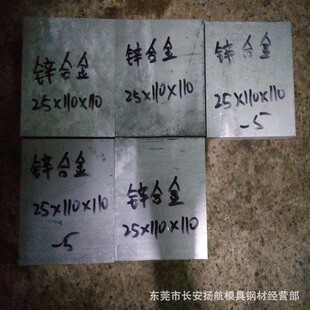 锌合金
25×110×110
锌合金
25×110×110
锌合金
25×110×110
-5
锌合金
25×110×110
-5
锌合金
25×110×110
东莞市长安扬航模具钢材经营部